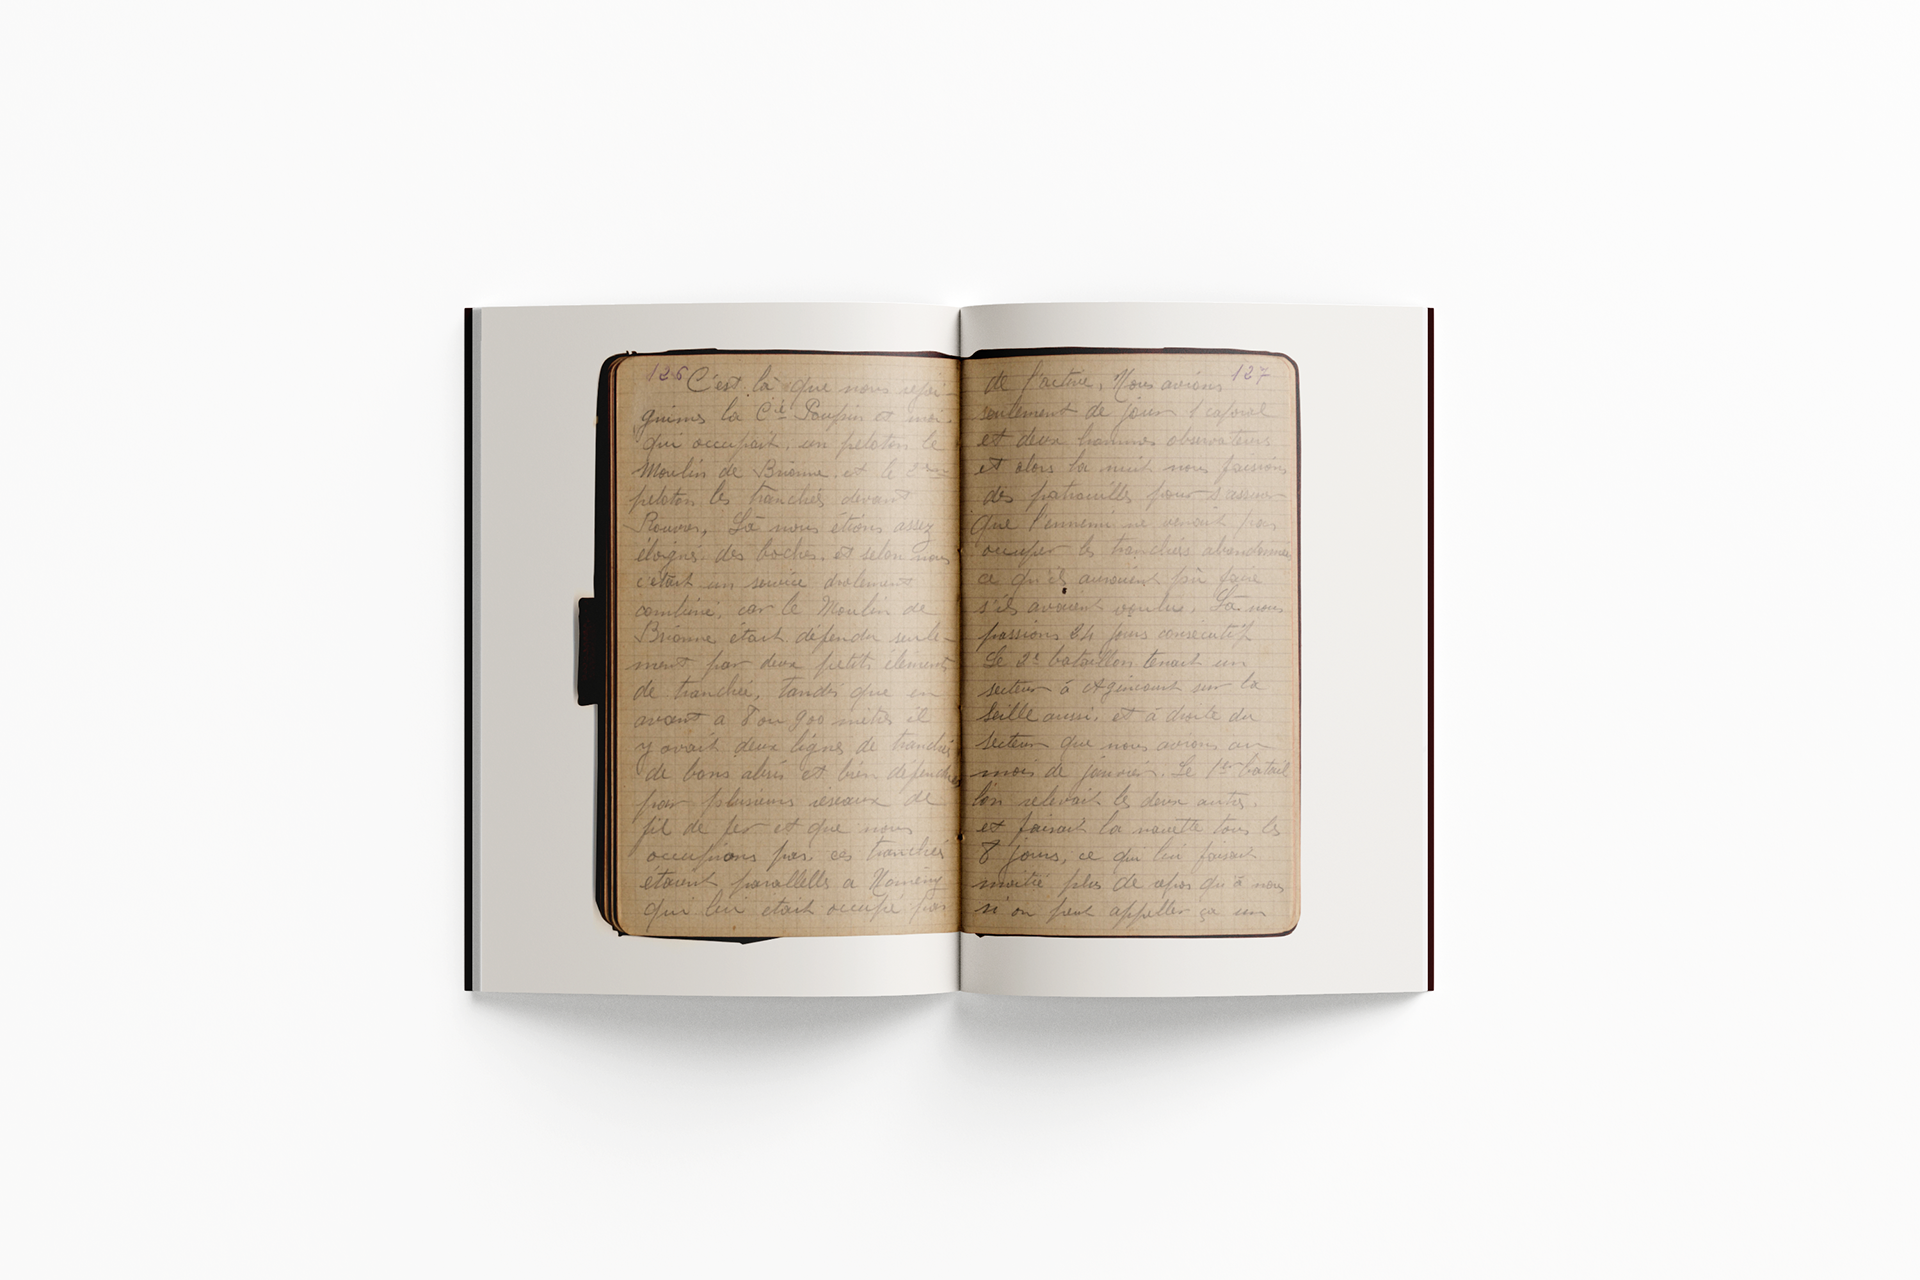 126 C'est là que nous rejoi-
gnimes la Cie Poupin et moi.
qui occupait, un peloton le
Moulin de Brionne, et le 2ème
peloton les tranchés devant
Rouves, Là nous étions assez
éloignés des boches, et selon nous
c'était un service drolement
combiné, car le Moulin de
Brionne était défendu seule-
ment par deux petits éléments
de tranchée, tandis que en
avant a 8 ou 900 mètres il
y avait deux lignes de tranchés
de bons abris et bien défendues
par plusieurs réseaux de
fil de fer et que nous
occupions pas, ces tranchés
étaient parallelles a Nomeny
qui lui etait occupé par
127
de l'active, Nous avions
seulement de jour 1 caporal
et deux hommes observateurs
et alors la nuit nous faisions
des patrouilles pour s'assurer
que l'ennemi ne venait pas
occuper les tranchées abandonnés
ce qu'ils auraient pu faire
s'ils avaient voulue, Là nous
passions 24 jours consécutif
Le 2e bataillon tenait un
secteur à Agincourt sur la
Seille aussi, et à droite du
secteur que nous avions au
mois de janvier. Le 1er batail
lon relevait les deux autres,
et faisait la navette tous les
8 jours, ce qui lui faisait
moitié plus de repos qu'à nous
si on peut appeller ça un